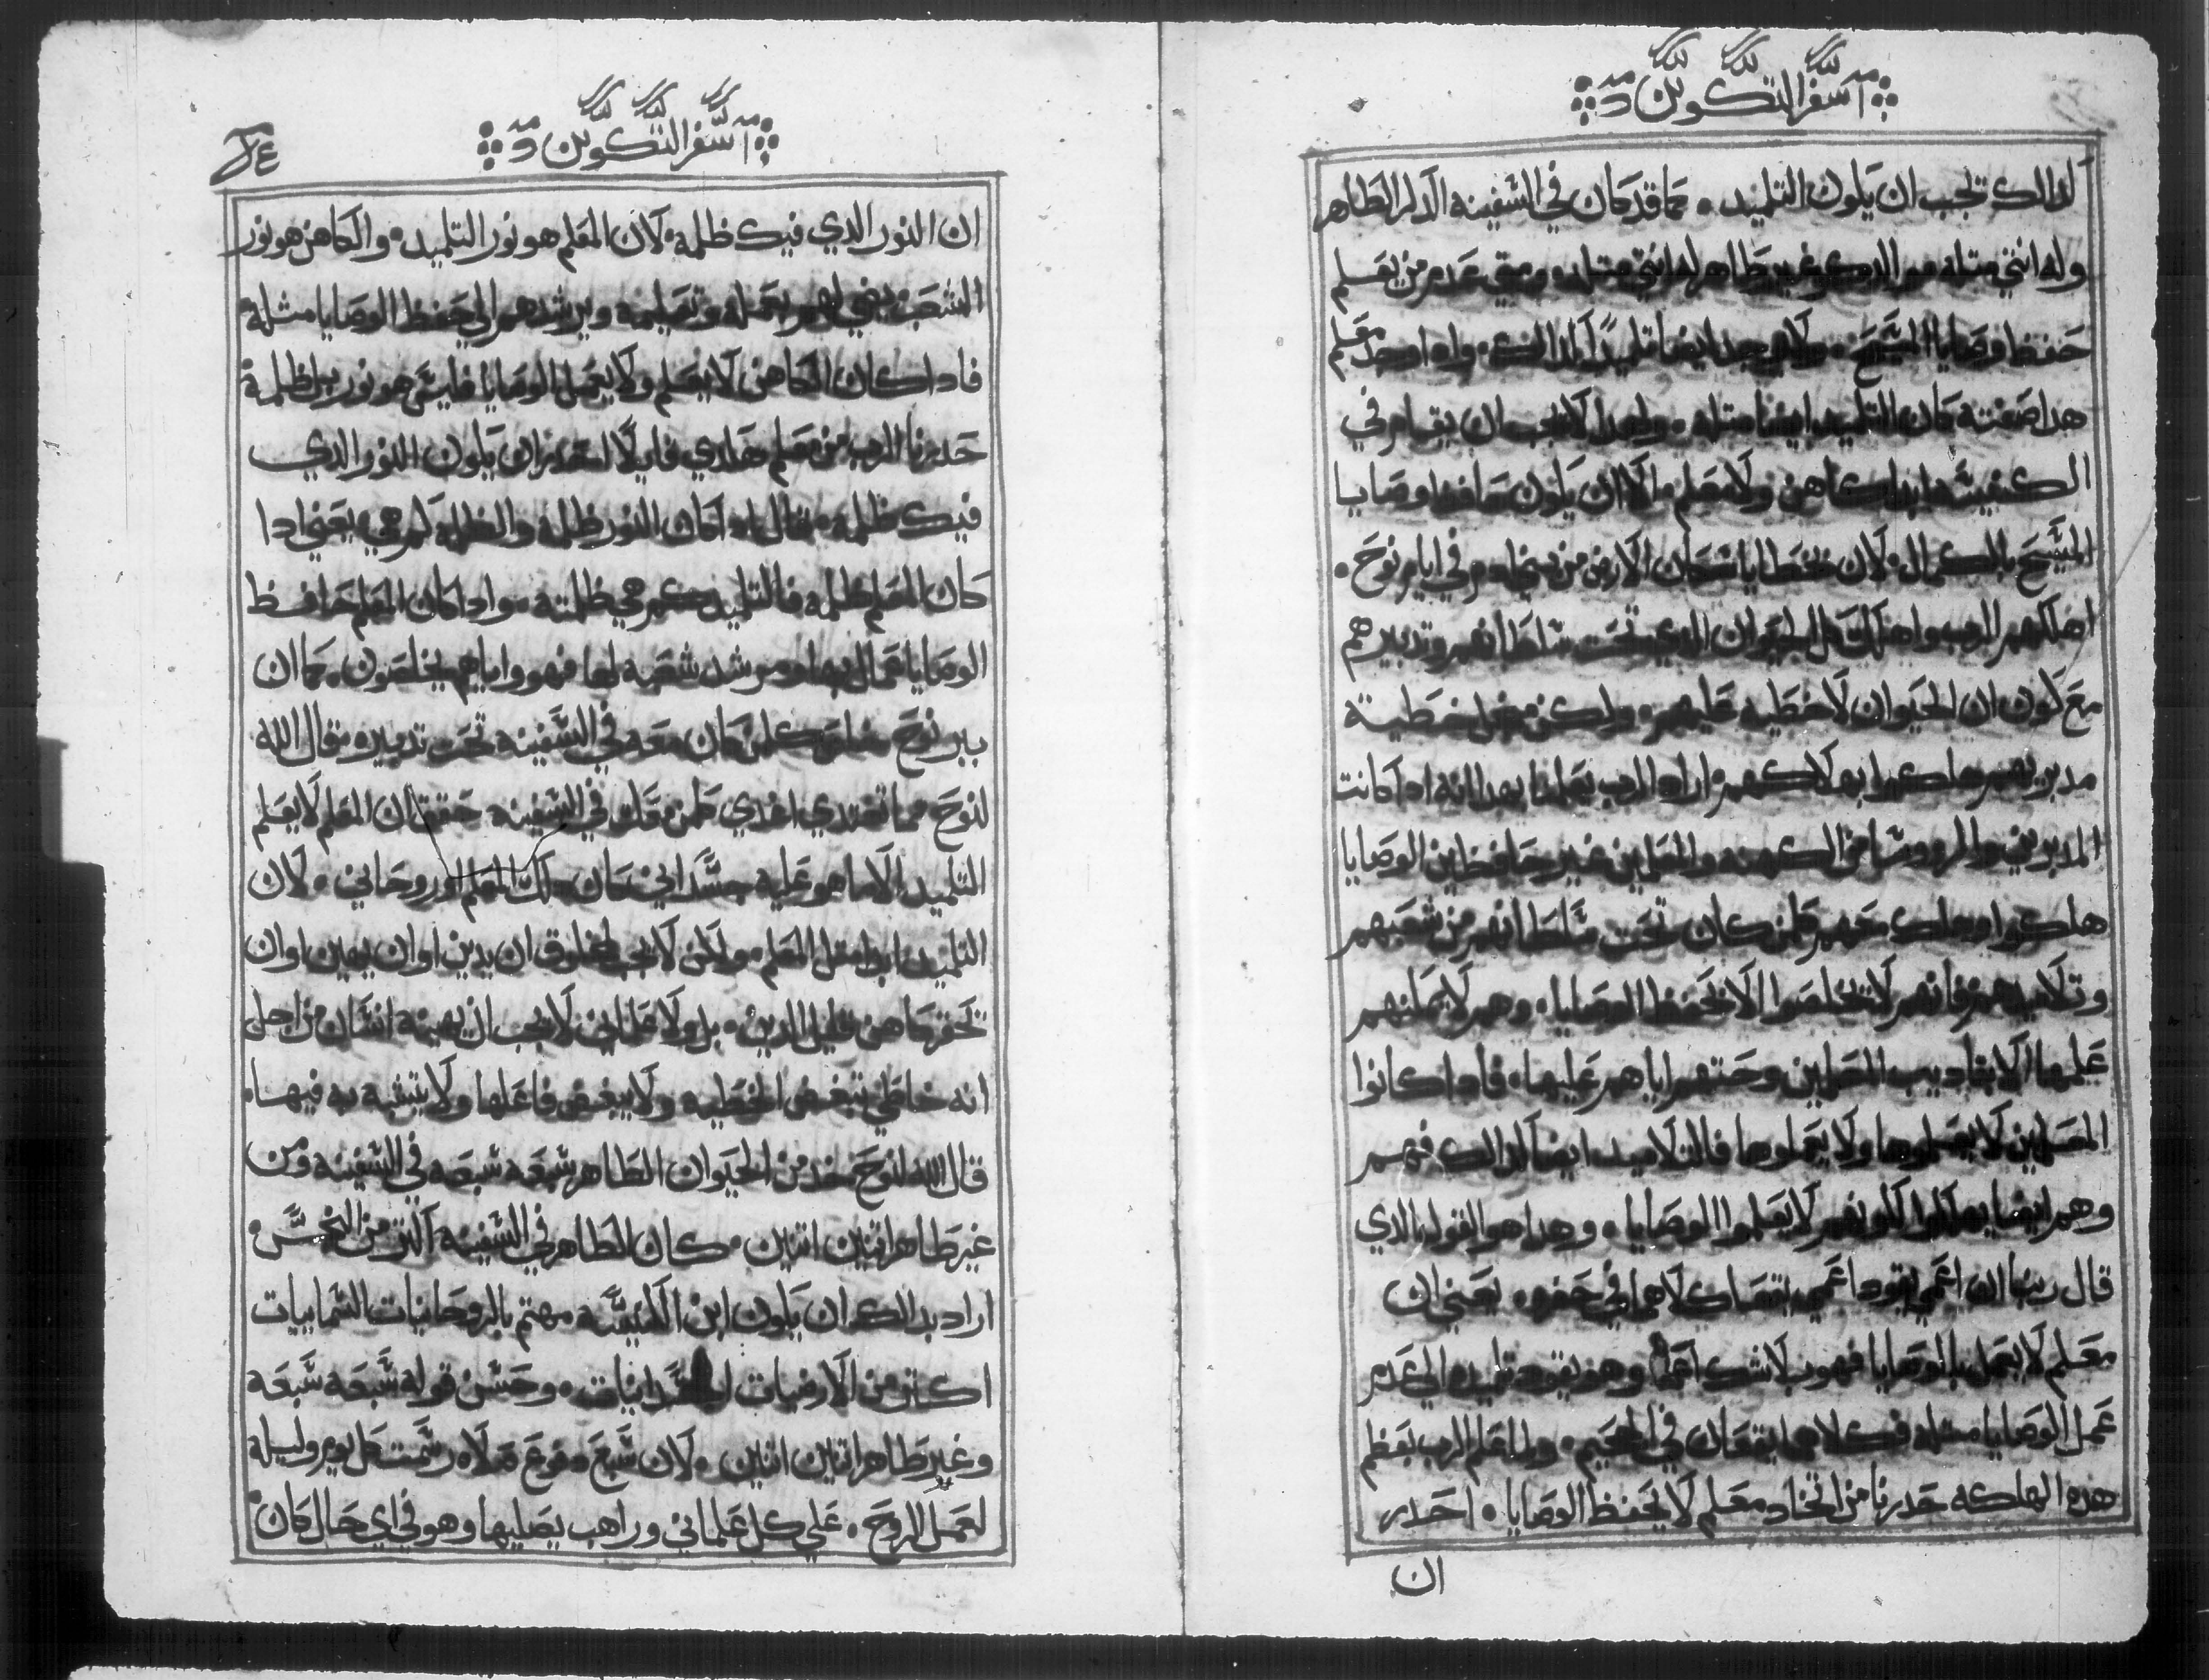 سفر التكوين
لدالك تجب ان يكون التلميد • كما قد كان في السفينه الدكر الطاهر
وله انثي متله هو الدكر وغير طاهر له انثي متله ومتي عدم من يعلم
حفظ وصايا المسيح • ولا يوجد ايضا تلميدًا لدالك • وادا وجد معلم
هدا صفته كان التلميد ايضا متله • ولهدا لا تجب ان يقام في
الكنيسه ابدا كاهن ولا معلم • الا ان يكون حافظ وصايا
المسيح بالكمال • لان بخطايا سكان الارض من في ايام نوح •
اهلكهم الرب واهلك كل الحيوان الدي تحت سلطانهم وتدبيرهم
مع كون ان الحيوان لا خطيه عليهم • ولكن من اجل خطية
مدبريهم هلكوا بهلاكهم • اراد الرب يعلمنا بهدا انه ادا كانت
المدبرين والروسا من الكهنه والمعلمين غير حافظين الوصايا
هلكوا وهلك معهم كلمن كان تحت سلطانهم من شعبهم
وتلاميدهم فانهم لا تخلصوا الا بحفظ الوصايا • وهم لا يمكنهم
عملها الا بتاديب المعلمين وحتهم اياهم عليها • فادا كانوا
المعلمين لا يعملوها ولا يعلموها فالتلاميد ايضا كدالك فهم
وهم ايضا يهلكوا لكونهم لا يعلموا الوصايا • وهدا هو القول الدي
قال ربنا ان اعمي يقود اعمي يتقعان كلاهما في حفره • يعني ان
معلم لا يعمل بالوصايا فهو بلا شك اعما وهو يقود تلميده الي عدم
عمل الوصايا متله فكلاهما يقعان في الجحيم • ولما علم الرب بعظم
هده الهلكه حدرنا من اتخاد معلم لا يحفظ الوصايا • احدر
ان
سفر التكوين
٢٤
ان النور الدي فيك ظلمه • لان المعلم هو نور التلميد • والكاهن هو نور
الشعب يضي لهم بعمله وتعليمه ويرشدهم الي حفظ الوصايا مثله •
فادا كان الكاهن لا يعلم ولا يعمل الوصايا فليس هو نور بل ظلمة
حدرنا الرب من معلم هكدي قايلًا احدر ان يكون النور الدي
فيك ظلمه • وقال ادا كان النور ظلمه والظلمه كم هي يعني ادا
كان المعلم ظلمه فالتلميد كم هي ظلمته • وادا كان المعلم حافظ
الوصايا عمال بها ومرشد شعبه لها فهو واياهم يخلصون • كما ان
ببر نوح خلص كلمن كان معه في السفينه تحت تدبيره • قال الله
لنوح مما تغتدي اغدي كلمن معك في السفينه حقق ان المعلم لا يعلم
التلميد الا ما هو عليه جسداني كان دلك المعلم او روحاني • لان
التلميد ابدا متل المعلم • ولكن لا يجب لمخلوق ان يدين او ان يهين او ان
تحقر كاهن قليل الدين • بل ولا علماني لا يجب ان يهينه انسان من اجل
انه خاطي تبغض الخطيه ولا يبغض فاعلها ولا يتشبه به فيها •
قال الله لنوح خد من الحيوان الطاهر سبعه سبعه في السفينه ومن
غير طاهر اتنين اتنين • كان الطاهر في السفينه اكتر من النجس •
اراد بدالك ان يكون ابن الكنيسه مهتم بالروحانيات السماييات
اكتر من الارضيات الجسدانيات • وحسن قوله سبعه سبعه
وغير طاهر اتنين اتنين • لان سبع دفوع صلاه رسمت كل يوم وليله
لعمل الروح • علي كل علماني وراهب يصليها وهو في اي حال كان •